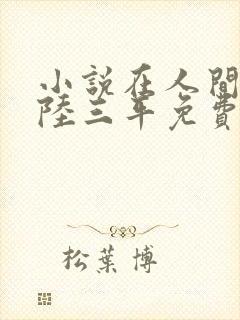 小說在人間
陸三年免費
松葉博